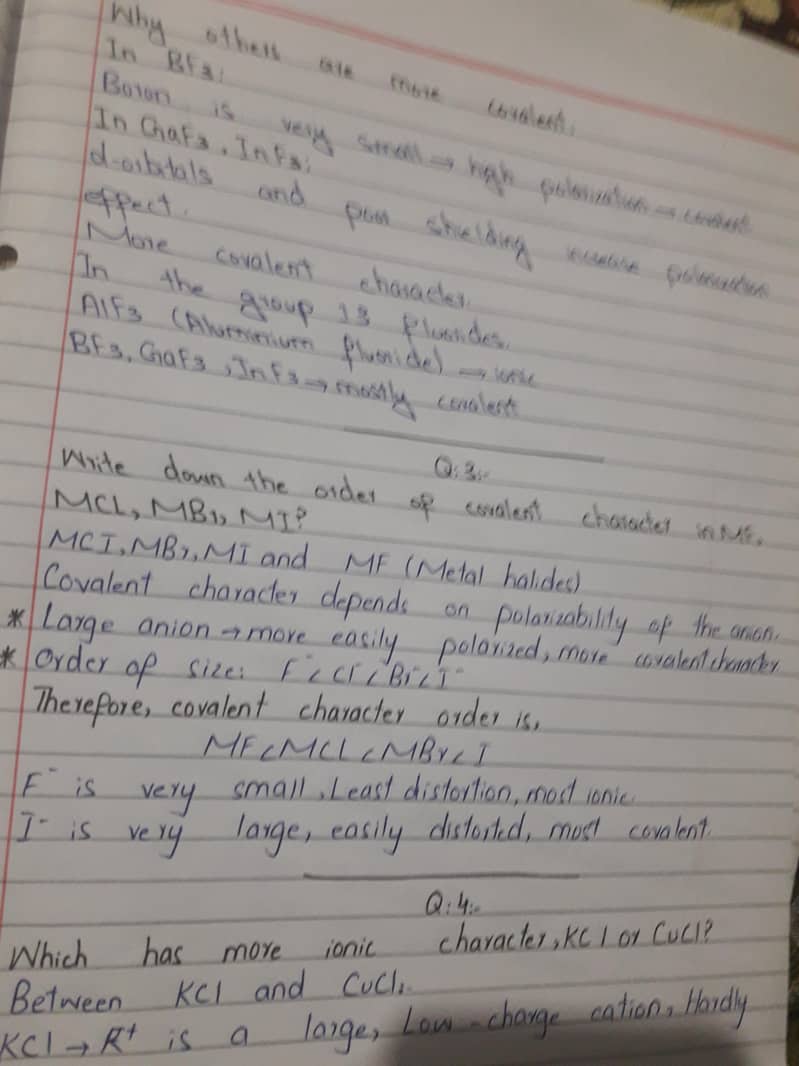 Why others are more covalent.
In BF3:
Boron is very small → high polarization → covalent
In GaF3, InF3:
d-orbitals and poor shielding increase polarization
effect.
More covalent character.
In the group 13 fluorides.
AlF3 (Aluminium fluoride) → ionic
BF3, GaF3, InF3 → mostly covalent
Q:3:-
Write down the order of covalent character in MF,
MCL, MBr, MI?
MCI, MBr, MI and MF (Metal halides)
Covalent character depends on polarizability of the anion.
* Large anion → more easily polarized, more covalent character
* Order of size: F⁻ < Cl⁻ < Br⁻ < I⁻
Therefore, covalent character order is,
MF < MCL < MBr < I
F⁻ is very small, Least distortion, most ionic.
I⁻ is very large, easily distorted, most covalent.
Q:4:-
Which has more ionic character, KCl or CuCl?
Between KCl and CuCl.
KCl → K⁺ is a large, Low-charge cation, Hardly